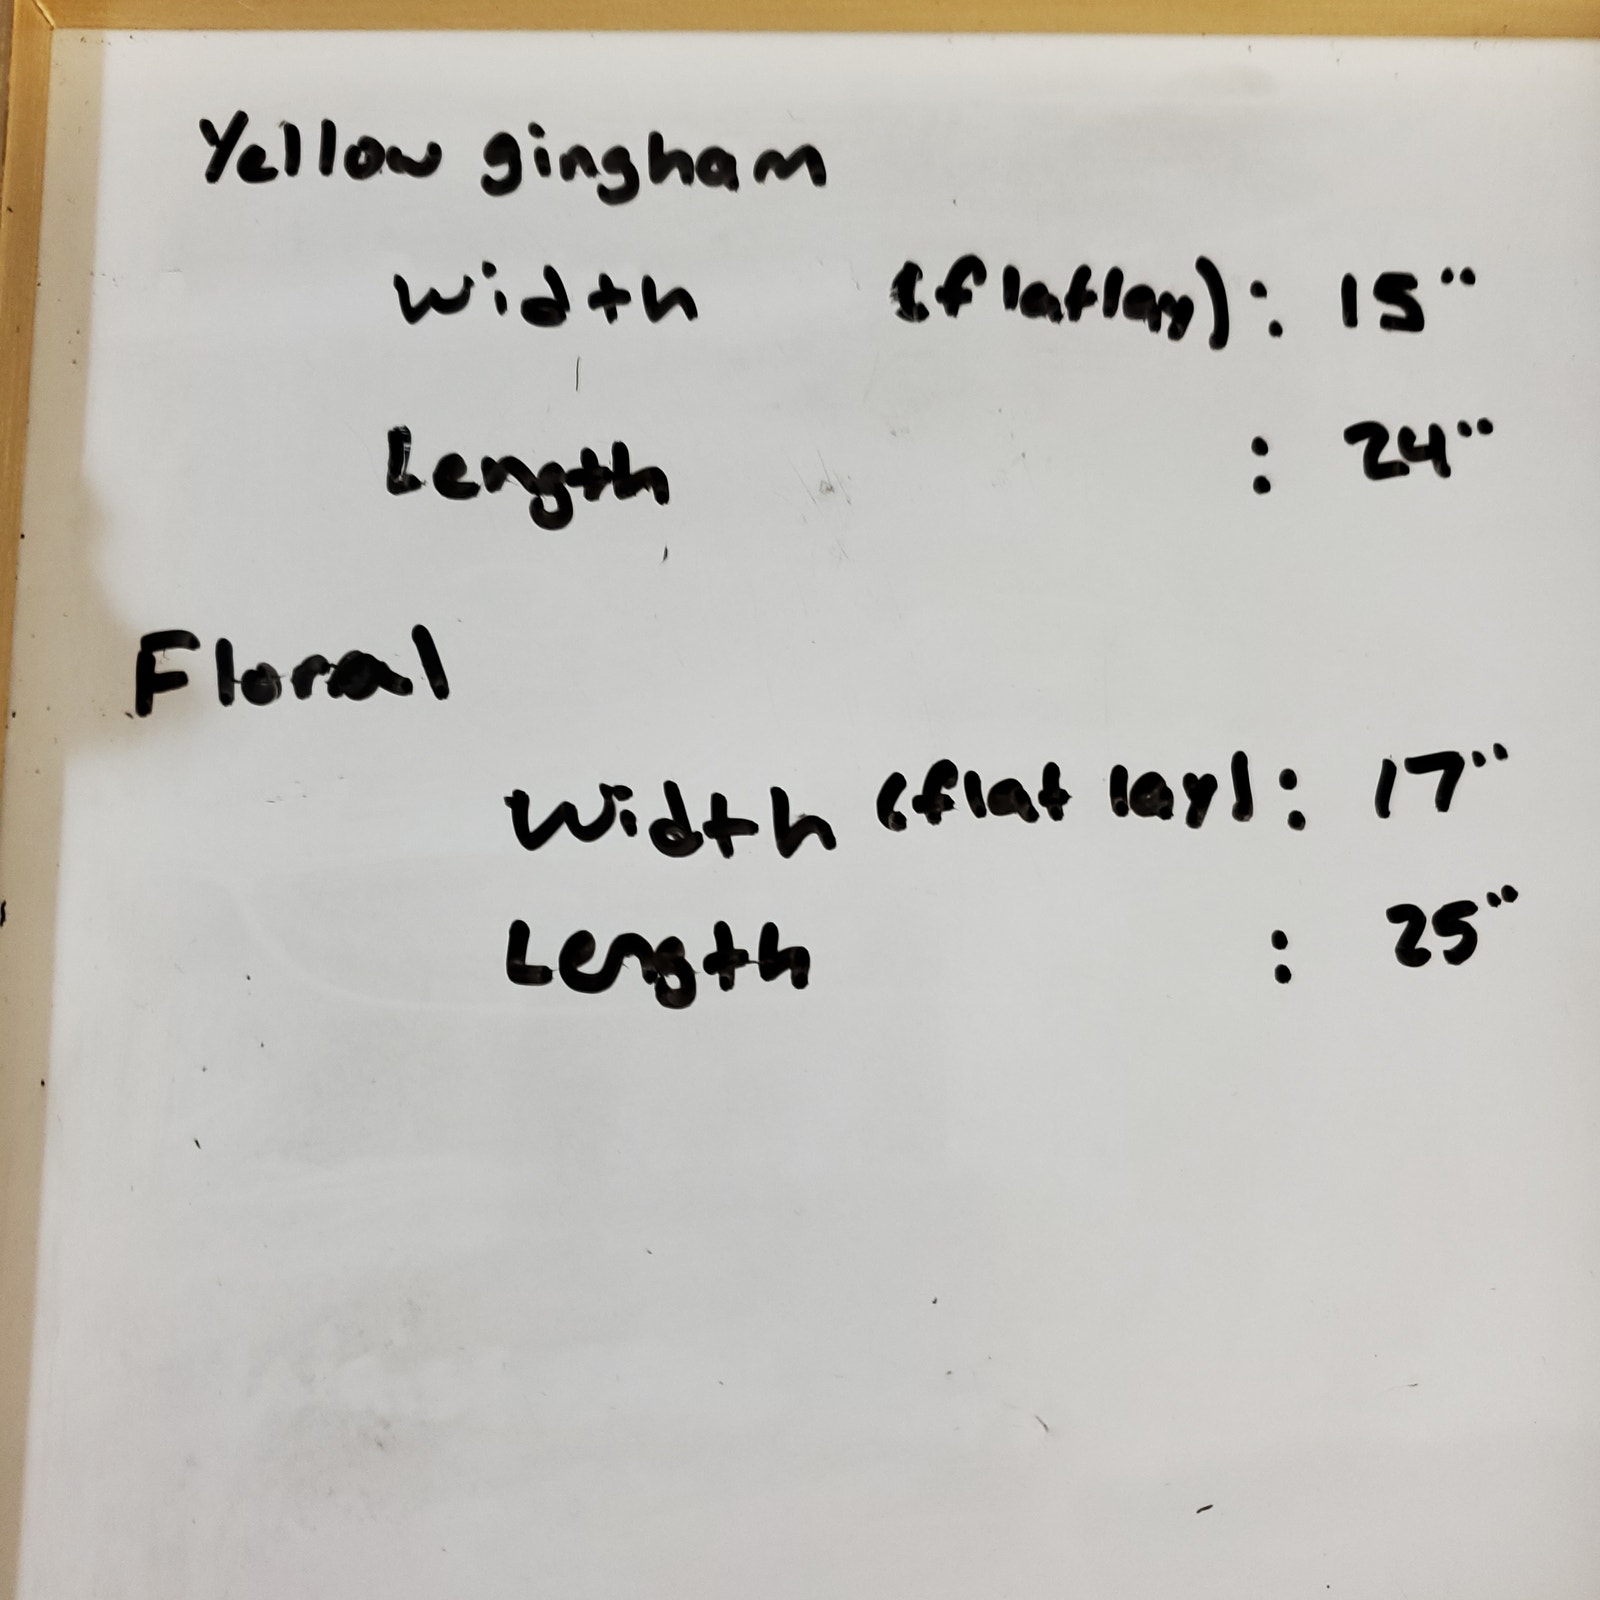 Yellow gingham
Width (flatlay): 15"
Length : 24"
Floral
Width (flat lay): 17"
Length : 25"